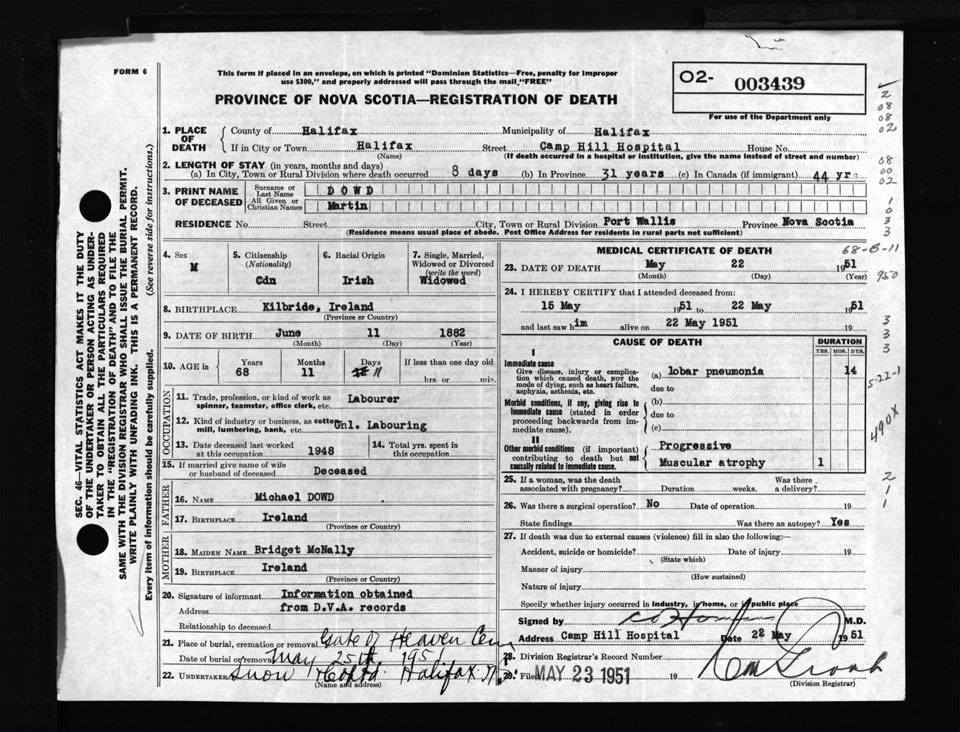 FORM 6
This form if placed in an envelope, on which is printed "Dominion Statistics—Free, penalty for improper
use $300," and properly addressed will pass through the mail "FREE"
PROVINCE OF NOVA SCOTIA—REGISTRATION OF DEATH
O2- 003439
For use of the Department only
SEC. 46—VITAL STATISTICS ACT MAKES IT THE DUTY
OF THE UNDERTAKER OR PERSON ACTING AS UNDER-
TAKER TO OBTAIN ALL THE PARTICULARS REQUIRED
IN THE "REGISTRATION OF DEATH" AND TO FILE THE
SAME WITH THE DIVISION REGISTRAR WHO SHALL ISSUE THE BURIAL PERMIT.
WRITE PLAINLY WITH UNFADING INK. THIS IS A PERMANENT RECORD.
Every item of information should be carefully supplied. (See reverse side for instructions.)
1. PLACE OF DEATH
County of Halifax Municipality of Halifax
If in City or Town Halifax Street Camp Hill Hospital House No.
(Name) (If death occurred in a hospital or institution, give the name instead of street and number)
2. LENGTH OF STAY (in years, months and days)
(a) In City, Town or Rural Division where death occurred 8 days (b) In Province 31 years (c) In Canada (if immigrant) 44 yrs
3. PRINT NAME OF DECEASED
Surname or Last Name DOWD
All Given or Christian Names Martin
RESIDENCE No. Street City, Town or Rural Division Port Wallis Province Nova Scotia
(Residence means usual place of abode. Post Office Address for residents in rural parts not sufficient)
4. Sex 5. Citizenship 6. Racial Origin 7. Single, Married,
(Nationality) Widowed or Divorced
(write the word)
M Cdn Irish Widowed
8. BIRTHPLACE Kilbride, Ireland
(Province or Country)
9. DATE OF BIRTH June 11 1882
(Month) (Day) (Year)
10. AGE in Years Months Days If less than one day old
68 11 11 hrs. or min.
OCCUPATION
11. Trade, profession, or kind of work as Labourer
spinner, teamster, office clerk, etc.
12. Kind of industry or business, as cotton
mill, lumbering, bank, etc. Gnl. Labouring
13. Date deceased last worked
at this occupation 1948
14. Total yrs. spent in
this occupation
15. If married give name of wife
or husband of deceased Deceased
FATHER
16. NAME Michael DOWD
17. BIRTHPLACE Ireland
(Province or Country)
MOTHER
18. MAIDEN NAME Bridget McNally
19. BIRTHPLACE Ireland
(Province or Country)
20. Signature of informant Information obtained
Address from D.V.A. records
Relationship to deceased
21. Place of burial, cremation or removal Gate of Heaven Cem
Date of burial or removal May 25th 1951
22. UNDERTAKER Snow & Co Ltd. Halifax N.S.
(Name and address)
MEDICAL CERTIFICATE OF DEATH
23. DATE OF DEATH May 22 1951
(Month) (Day) (Year)
24. I HEREBY CERTIFY that I attended deceased from:
15 May 1951 to 22 May 1951
and last saw him alive on 22 May 1951 19
CAUSE OF DEATH DURATION
YRS. MOS. DYS.
I
Immediate cause
Give disease, injury or complica-
tion which caused death, NOT the
mode of dying, such as heart failure,
asphyxia, asthenia, etc.
(a) lobar pneumonia 14
due to
Morbid conditions, if any, giving rise to
immediate cause (stated in order
proceeding backwards from im-
mediate cause).
(b)
due to
(c)
II
Other morbid conditions (if important)
contributing to death but not
causally related to immediate cause.
Progressive
Muscular atrophy 1
25. If a woman, was the death Was there
associated with pregnancy? Duration weeks. a delivery?
26. Was there a surgical operation? No Date of operation 19
State findings Was there an autopsy? Yes
27. If death was due to external causes (violence) fill in also the following:—
Accident, suicide or homicide? Date of injury 19
(State which)
Manner of injury
(How sustained)
Nature of injury
Specify whether injury occurred in industry, in home, or in public place
Signed by M.D.
Address Camp Hill Hospital Date 22 May 1951
28. Division Registrar's Record Number
29. Filed MAY 23 1951 19
(Division Registrar)
2
08
08
02
08
00
02
1
0
3
3
68-B-11
950
3
3
3
5-22-1
490X
2
1
1